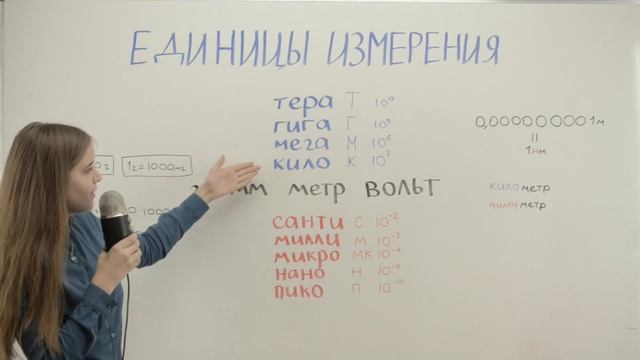 ЕДИНИЦЫ ИЗМЕРЕНИЯ
тера Т 10¹²
гига Г 10⁹
мега М 10⁶
кило К 10³
1г = 1000мг
метр ВОЛЬТ
санти С 10⁻²
милли М 10⁻³
микро МК 10⁻⁶
нано Н 10⁻⁹
пико П 10⁻¹²
0,000000001м
=
1нм
километр
миллиметр